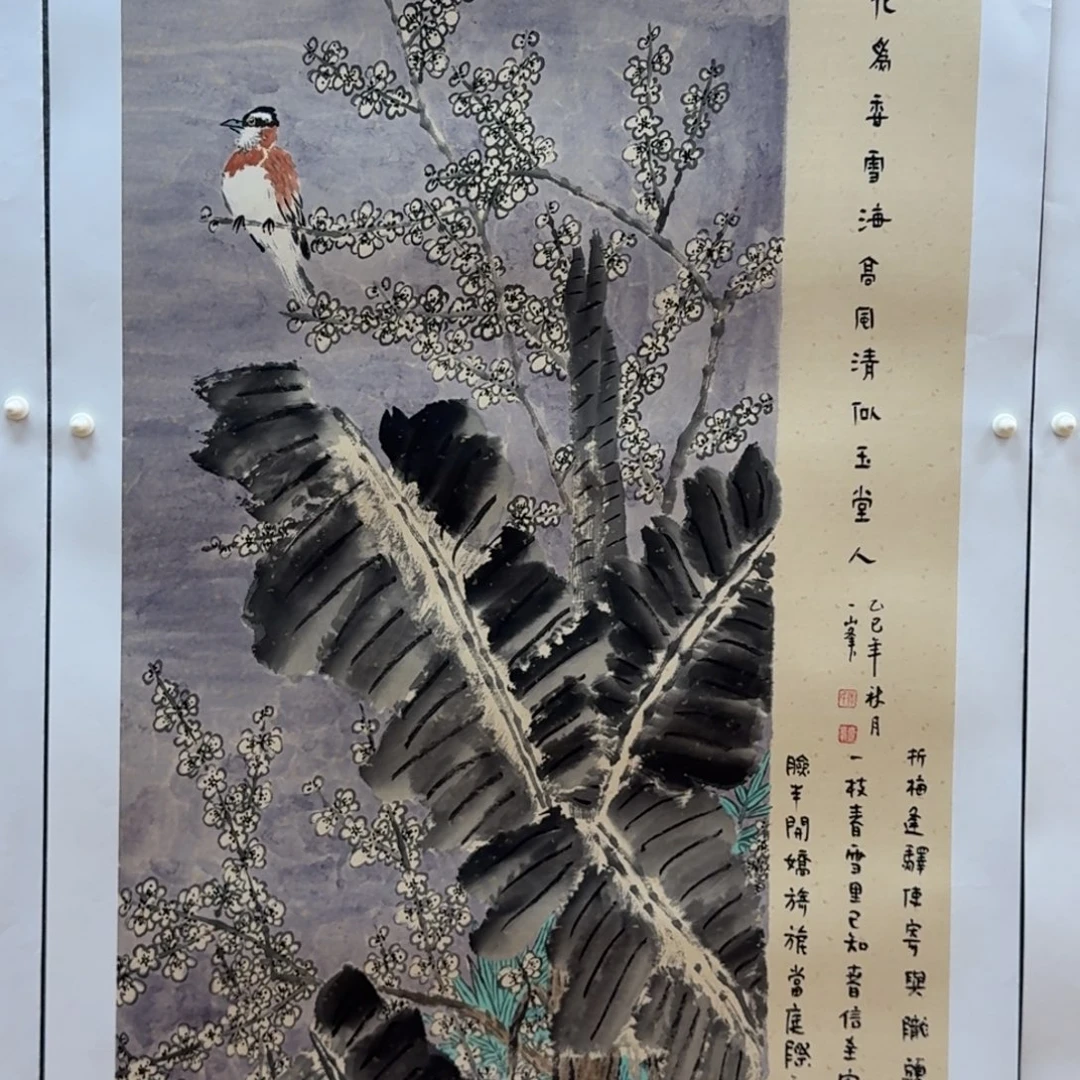 為香雪海高風清似玉堂人
乙巳年秋月
一峯
折梅逢驛使寄與隴頭
一枝春雪里已知春信至
臉半開嬌旖旎當庭際